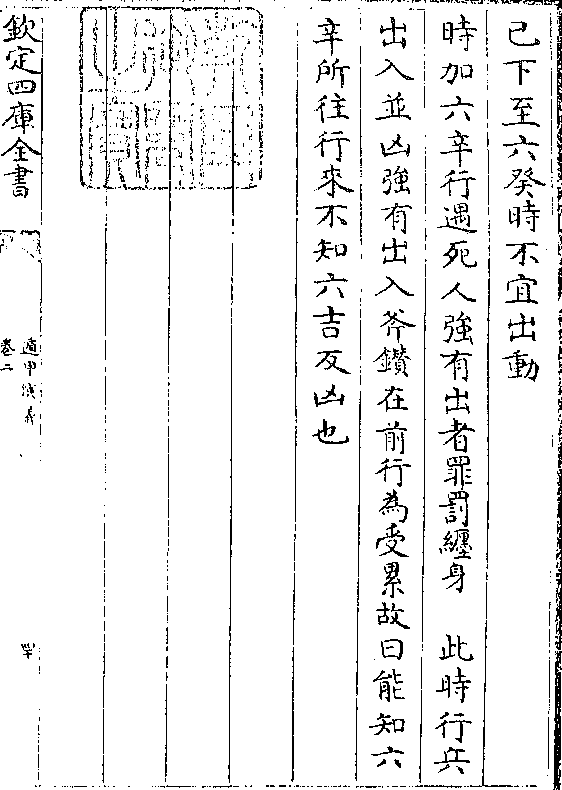 己下至六癸時不宜出動
時加六辛行遇死人強有出者罪罰纏身　此時行兵
出入並凶強有出入斧鑕在前行為受累故曰能知六
辛所往行來不知六吉反凶也
欽定四庫全書
遁甲演義
卷二